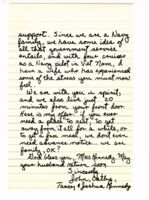 support. Since we are a Navy
family, we have some idea of
all that government service
entails, and with four cousins
as Navy pilots in Viet Nam, I
have a wife who has experienced
some of the stress you must now
feel.
We are with you in spirit,
and we also live just 20
minutes from your front door.
Here is my offer: if you ever
need a place to rest, to get
away from it all for a while, or
to get a free meal, we don't even
need advance notice. We are
family, OK?
God bless you, Mrs. Kennedy. May
your husband return,
Sincerely,
John, Cathy,
Tracey & Joshua Kennedy